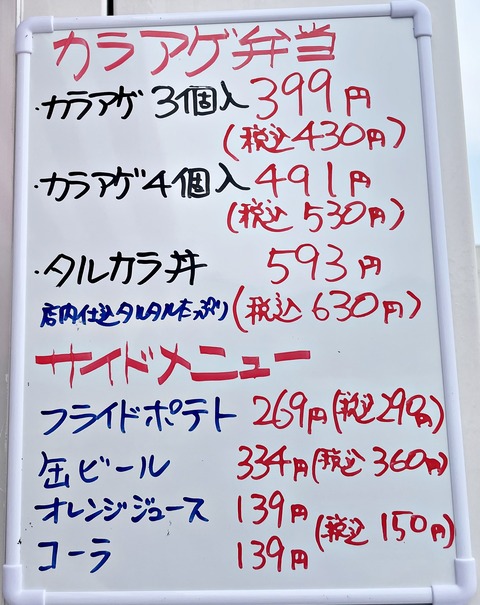 カラアゲ弁当
・カラアゲ3個入 399円
(税込430円)
・カラアゲ4個入 491円
(税込 530円)
・タルカラ丼 593円
店内仕込タルタルたっぷり (税込 630円)
サイドメニュー
フライドポテト 269円(税込290円)
缶ビール 334円(税込 360円)
オレンジジュース 139円
(税込 150円)
コーラ 139円